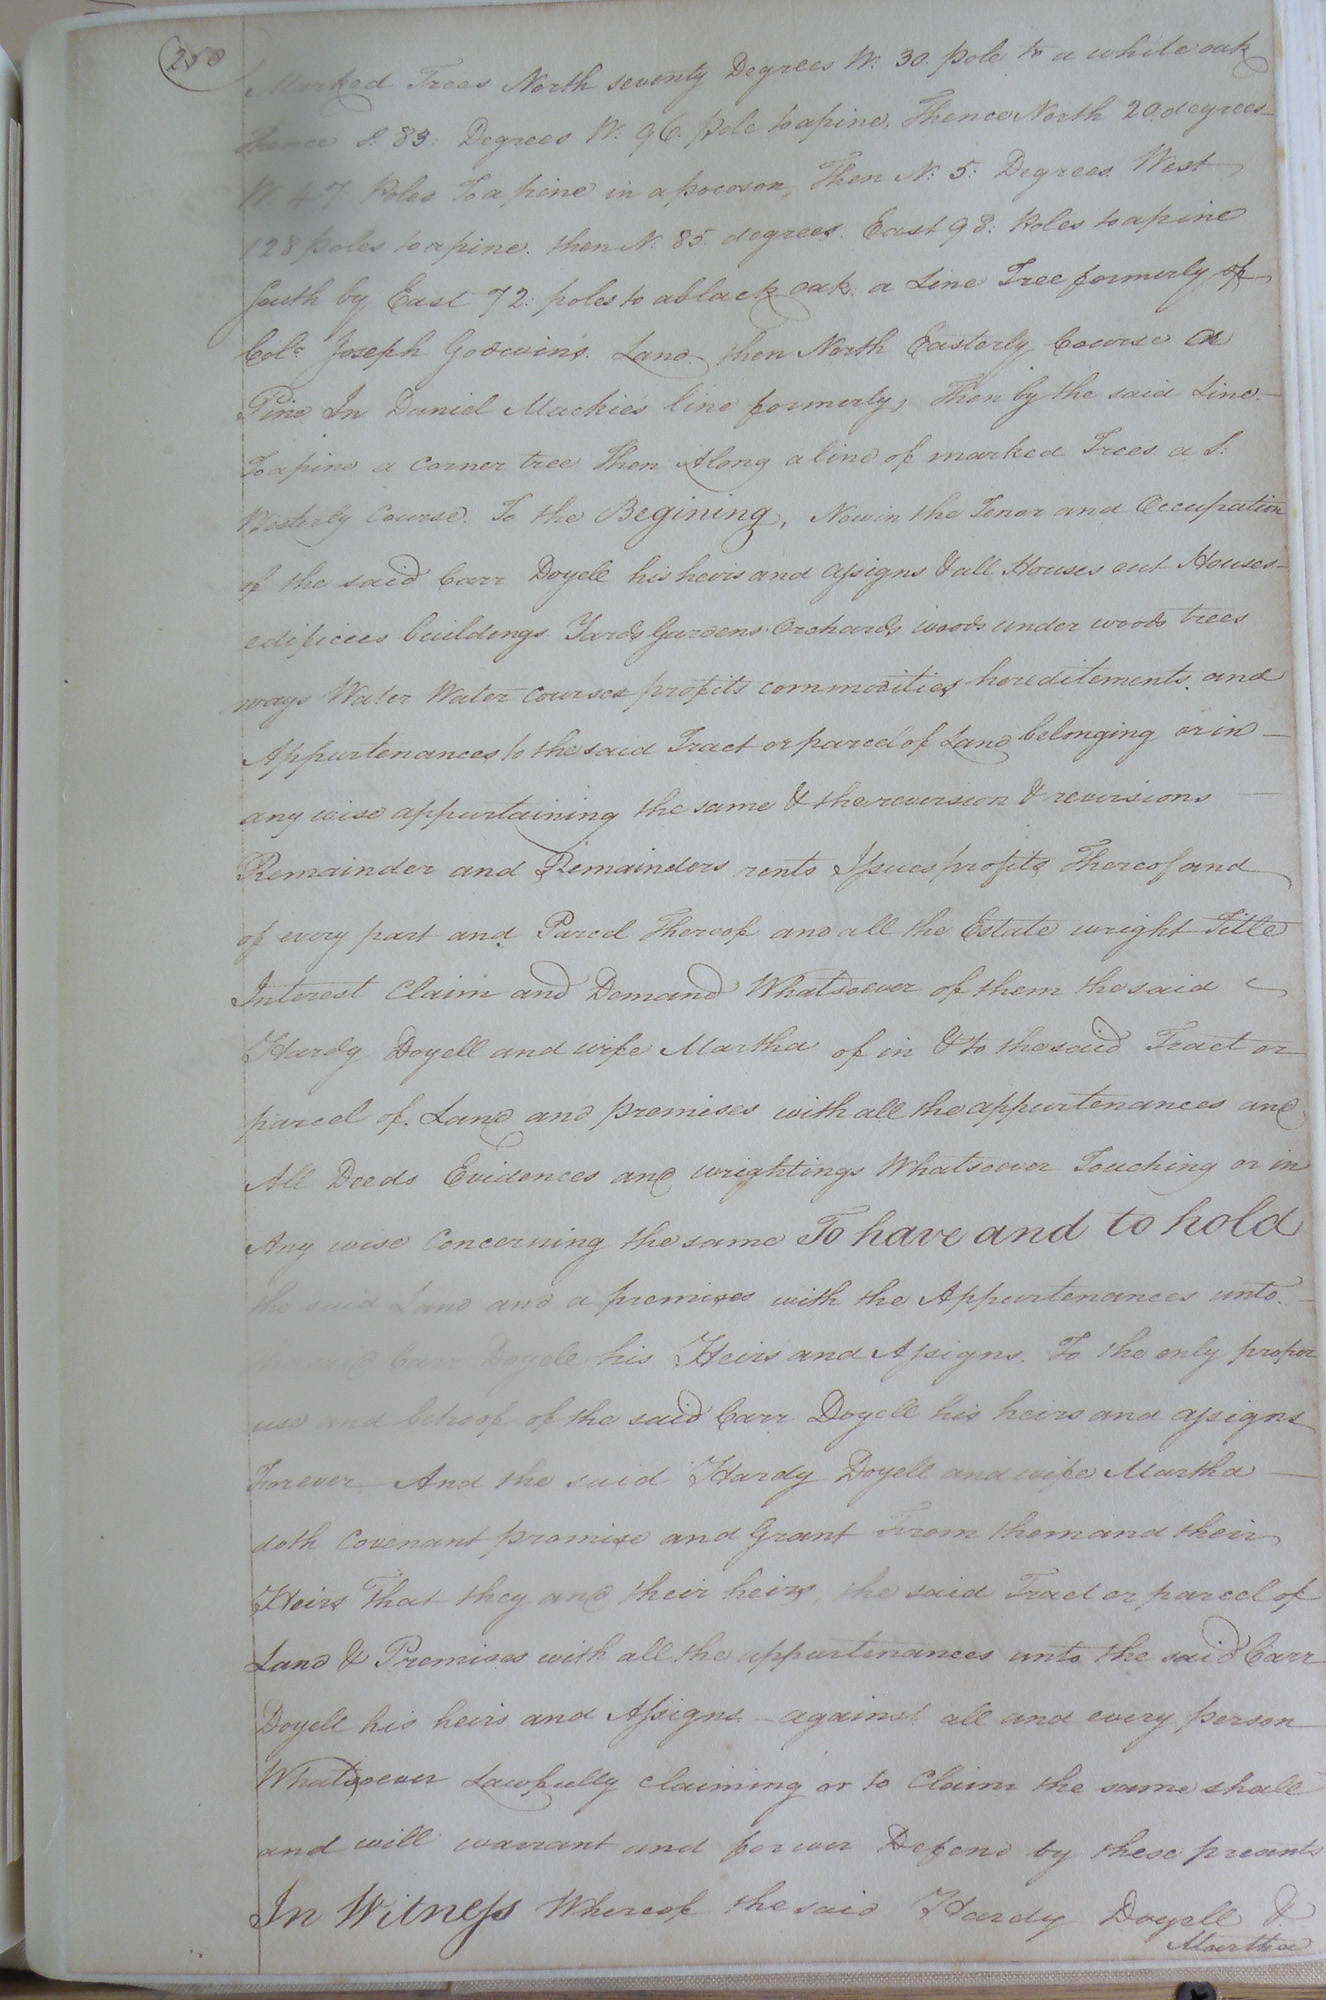 250
Marked Trees North seventy Degrees W. 30. pole to a white oak
Thence S. 83: Degrees W. 96 pole to a pine, Thence North 20 degrees
W 47 Poles To a pine in a pocoson, Then N: 5: Degrees West
128 poles to a pine. then N. 85 degrees. East 98: Poles to a pine
South by East 72: poles to a black oak. a Line Tree formerly of
Colo Joseph Godwin's. Land. then North Easterly Course a
Pine In Daniel Mackie's line formerly, Then by the said Line.
To a pine a corner tree Then Along a line of marked Trees a S:
Westerly Course. To the Begining, Now in the Tenor and Occupation
of the said Carr Doyell his heirs and assigns & all Houses out Houses
edificies buildings Yards Gardens Orchards woods under woods trees
ways Water Water Courses profits commodities hereditements. and
Appurtenances to the said Tract or parcel of Land belonging or in
any wise appurtaining the same & the reversion & reversions
Remainder and Remainders rents Issues profits Thereof and
of every part and Parcel Thereof and all the Estate wright Title
Interest Claim and Demand Whatsoever of them the said
Hardy Doyell and wife Martha of in & to the said Tract or
parcel of. Land and premises with all the appurtenances and
All Deeds Evidences and wrightings Whatsoever Touching or in
Any wise Concerning the same To have and to hold
the said Land and a premises with the Appurtenances unto.
said Carr Doyell his Heirs and Assigns. To the only proper
use and behoof of the said Carr Doyell his heirs and assigns
Forever And the said Hardy Doyell and wife Martha
doth Covenant promise and Grant From them and their
Heirs That they and their heirs, the said Tract or parcel of
Land & Premises with all the appurtenances unto the said Carr
Doyell his heirs and Assigns. against all and every person
Whatsoever Lawfully claiming or to Claim the same shall
and will warrant and forever Defend by these presents
In Witness Whereof the said Hardy Doyell &
Martha